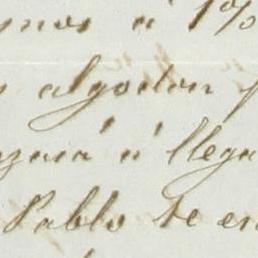 mos á 1%
algodon
zará á llega
Pablo te en